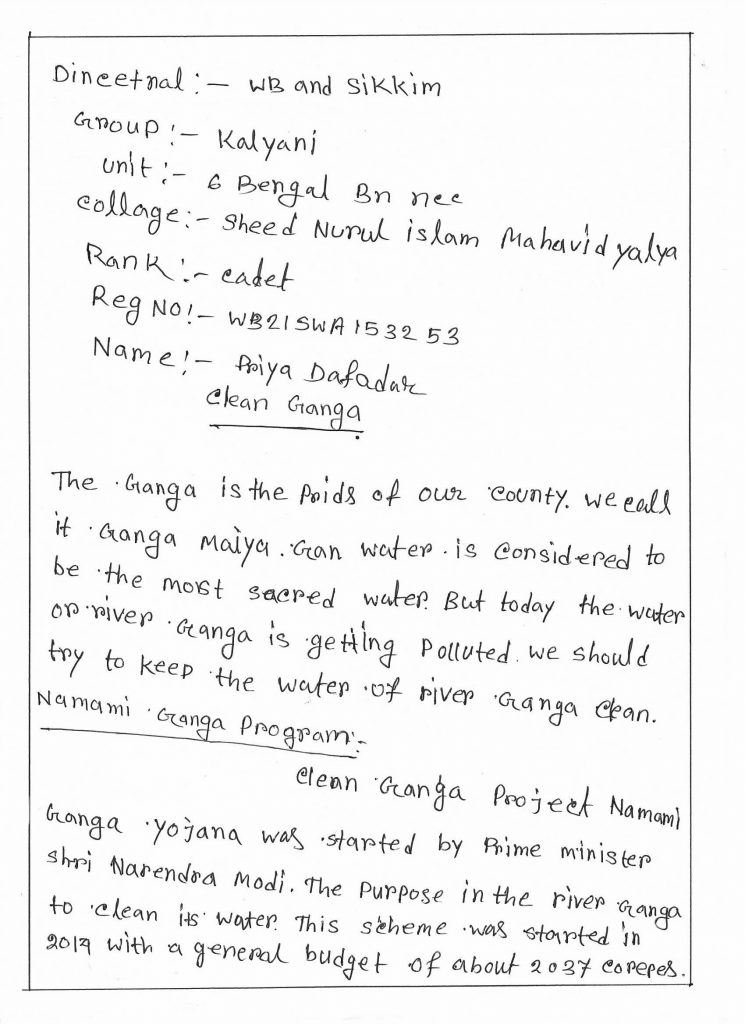 Dineetnal :- WB and Sikkim
Group :- Kalyani
unit :- 6 Bengal Bn ncc
collage :- Sheed Nurul islam Mahavidyalya
Rank :- cadet
Reg No :- WB21SWA153253
Name :- Priya Dafadar
Clean Ganga
The Ganga is the Prids of our county. we call
it Ganga Maiya. Gan water is Considered to
be the most sacred water. But today the water
or river Ganga is getting Polluted. we should
try to keep the water of river Ganga Clean.
Namami Ganga Program :-
Clean Ganga Project Namami
Ganga yojana was started by Prime minister
shri Narendra Modi. The Purpose in the river Ganga
to clean its water. This scheme was started in
with a general budget of about 2037